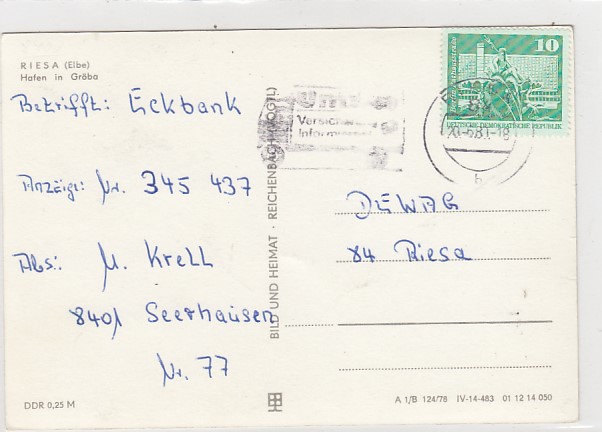 RIESA (Elbe)
Hafen in Gröba
Betrifft: Eckbank
Anzeige: Nr. 345 437
Abs.: M. Krell
8401 Seerhausen
Nr. 77
DDR 0,25 M
BILD UND HEIMAT · REICHENBACH (VOGTL)
10
DEUTSCHE DEMOKRATISCHE REPUBLIK
DEWAG
84 Riesa
A 1/B 124/78 IV-14-483 01 12 14 050